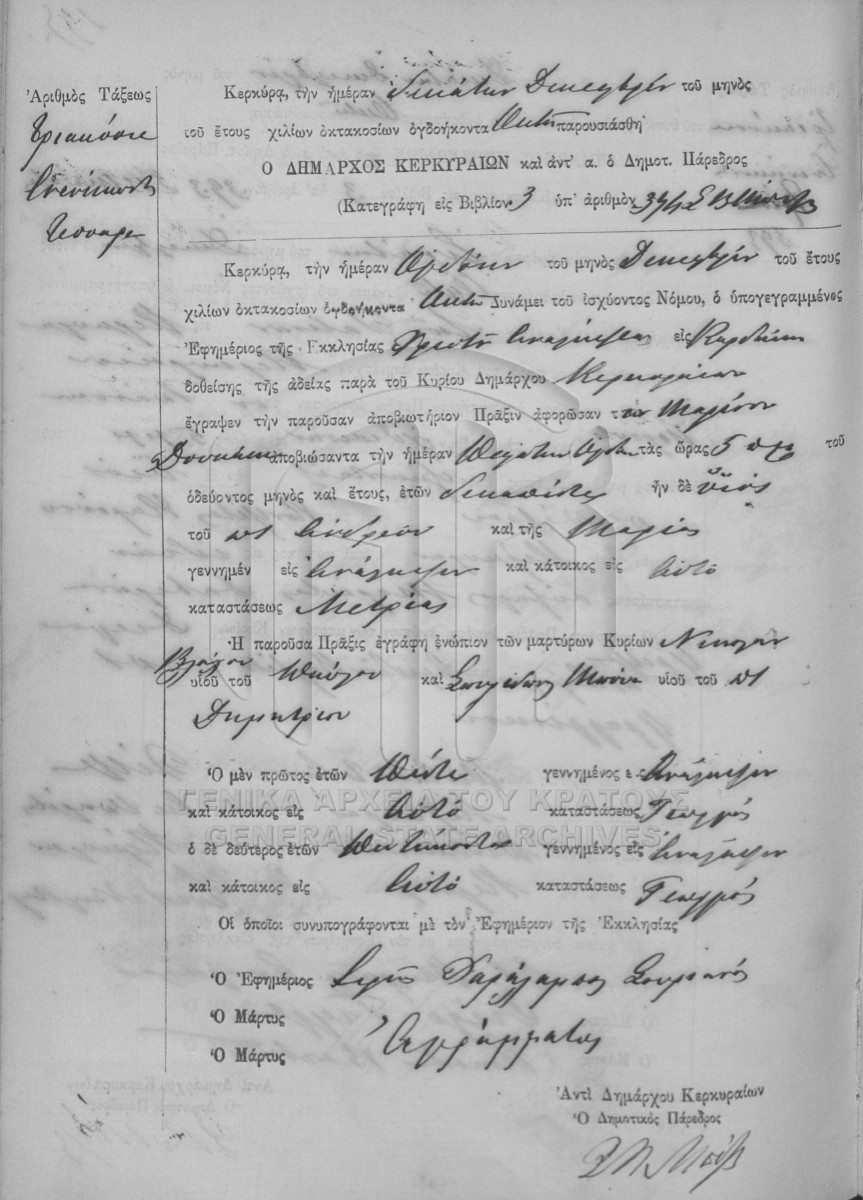 Ἀριθμὸς Τάξεως
Τριακόσια
Ἐνενήκοντα
Τέσσαρα
Κερκύρᾳ, τὴν ἡμέραν δεκάτην Δεκεμβρίου τοῦ μηνὸς
τοῦ ἔτους χιλίων ὀκτακοσίων ὀγδοήκοντα Ὀκτὼ παρουσιάσθη
Ὁ ΔΗΜΑΡΧΟΣ ΚΕΡΚΥΡΑΙΩΝ καὶ ἀντ' α. ὁ Δημοτ. Πάρεδρος
(Κατεγράφη εἰς Βιβλίον 3 ὑπ' ἀριθμὸν
Κερκύρᾳ, τὴν ἡμέραν Ὀγδόην τοῦ μηνὸς Δεκεμβρίου τοῦ ἔτους
χιλίων ὀκτακοσίων ὀγδοήκοντα Ὀκτὼ Δυνάμει τοῦ ἰσχύοντος Νόμου, ὁ ὑπογεγραμμένος
Ἐφημέριος τῆς Ἐκκλησίας Χριστοῦ Ἀναλήψεως εἰς
δοθείσης τῆς ἀδείας παρὰ τοῦ Κυρίου Δημάρχου Κερκυραίων
ἔγραψεν τὴν παροῦσαν ἀποβιωτήριον Πρᾶξιν ἀφορῶσαν τὸν
ἀποβιώσαντα τὴν ἡμέραν τὰς ὥρας 5 π.μ. τοῦ
ὁδεύοντος μηνὸς καὶ ἔτους, ἐτῶν δεκαπέντε ἦν δὲ υἱὸς
τοῦ ποτ Ἀνδρέου καὶ τῆς Μαρίας
γεννημέν εἰς Ἀνάληψιν καὶ κάτοικος εἰς Αὐτό
καταστάσεως Μετρίας
Ἡ παροῦσα Πρᾶξις ἐγράφη ἐνώπιον τῶν μαρτύρων Κυρίων Νικολάου
Βλάχου
υἱοῦ τοῦ καὶ Σπυρίδωνος υἱοῦ τοῦ ποτ
Δημητρίου
Ὁ μὲν πρῶτος ἐτῶν γεννημένος εἰς Ἀνάληψιν
καὶ κάτοικος εἰς Αὐτό καταστάσεως Γεωργός
ὁ δὲ δεύτερος ἐτῶν Πεντήκοντα γεννημένος εἰς Ἀνάληψιν
καὶ κάτοικος εἰς Αὐτό καταστάσεως Γεωργός
Οἱ ὁποῖοι συνυπογράφονται μὲ τὸν Ἐφημέριον τῆς Ἐκκλησίας
Ὁ Ἐφημέριος Χαράλαμπος
Ὁ Μάρτυς
Ἀγράμματος
Ὁ Μάρτυς
Ἀντὶ Δημάρχου Κερκυραίων
Ὁ Δημοτικὸς Πάρεδρος
ΓΕΝΙΚΑ ΑΡΧΕΙΑ ΤΟΥ ΚΡΑΤΟΥΣ
GENERAL STATE ARCHIVES